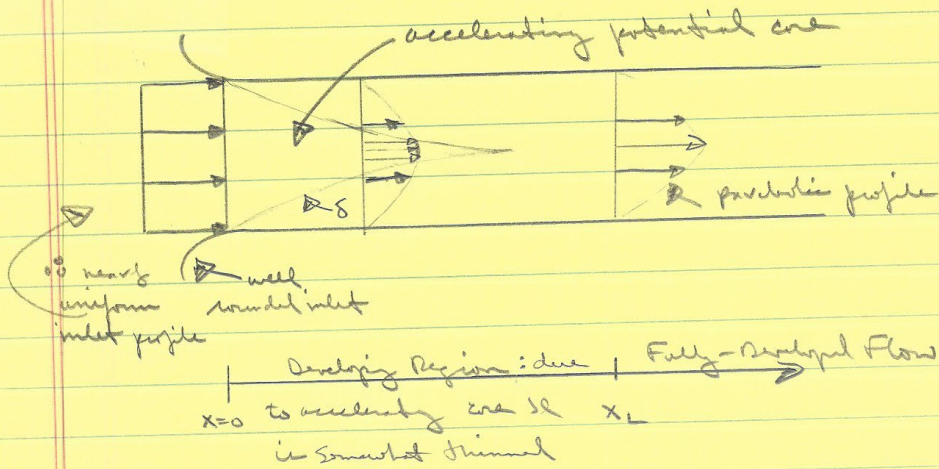 accelerating potential core
δ
parabolic profile
∴ nearly
uniform
inlet profile
well
rounded inlet
Developing Region: due
to accelerating core
is somewhat thinned
Fully-Developed Flow
x=0
x_L